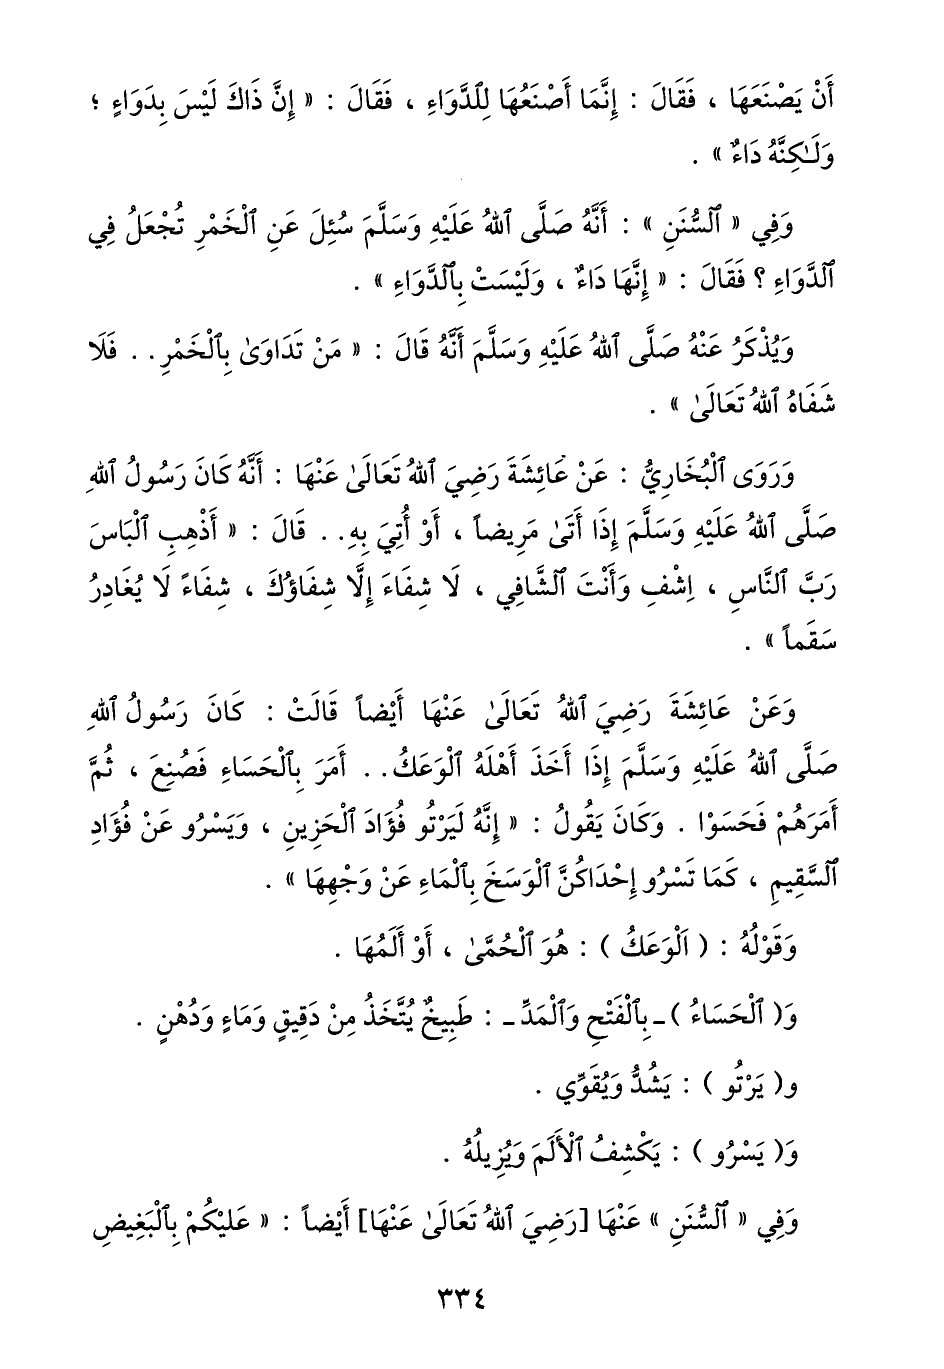 أَنْ يَصْنَعَهَا ، فَقَالَ : إِنَّمَا أَصْنَعُهَا لِلدَّوَاءِ ، فَقَالَ : « إِنَّ ذَاكَ لَيْسَ بِدَوَاءٍ ؛
وَلَـٰكِنَّهُ دَاءٌ » .
وَفِي « ٱلسُّنَنِ » : أَنَّهُ صَلَّى ٱللهُ عَلَيْهِ وَسَلَّمَ سُئِلَ عَنِ ٱلْخَمْرِ تُجْعَلُ فِي
ٱلدَّوَاءِ ؟ فَقَالَ : « إِنَّهَا دَاءٌ ، وَلَيْسَتْ بِٱلدَّوَاءِ » .
وَيُذْكَرُ عَنْهُ صَلَّى ٱللهُ عَلَيْهِ وَسَلَّمَ أَنَّهُ قَالَ : « مَنْ تَدَاوَىٰ بِٱلْخَمْرِ . . فَلَا
شَفَاهُ ٱللهُ تَعَالَىٰ » .
وَرَوَى ٱلْبُخَارِيُّ : عَنْ عَائِشَةَ رَضِيَ ٱللهُ تَعَالَىٰ عَنْهَا : أَنَّهُ كَانَ رَسُولُ ٱللهِ
صَلَّى ٱللهُ عَلَيْهِ وَسَلَّمَ إِذَا أَتَىٰ مَرِيضاً ، أَوْ أُتِيَ بِهِ . . قَالَ : « أَذْهِبِ ٱلْبَاسَ
رَبَّ ٱلنَّاسِ ، اِشْفِ وَأَنْتَ ٱلشَّافِي ، لَا شِفَاءَ إِلَّا شِفَاؤُكَ ، شِفَاءً لَا يُغَادِرُ
سَقَماً » .
وَعَنْ عَائِشَةَ رَضِيَ ٱللهُ تَعَالَىٰ عَنْهَا أَيْضاً قَالَتْ : كَانَ رَسُولُ ٱللهِ
صَلَّى ٱللهُ عَلَيْهِ وَسَلَّمَ إِذَا أَخَذَ أَهْلَهُ ٱلْوَعَكُ . . أَمَرَ بِٱلْحَسَاءِ فَصُنِعَ ، ثُمَّ
أَمَرَهُمْ فَحَسَوْا . وَكَانَ يَقُولُ : « إِنَّهُ لَيَرْتُو فُؤَادَ ٱلْحَزِينِ ، وَيَسْرُو عَنْ فُؤَادِ
ٱلسَّقِيمِ ، كَمَا تَسْرُو إِحْدَاكُنَّ ٱلْوَسَخَ بِٱلْمَاءِ عَنْ وَجْهِهَا » .
وَقَوْلُهُ : ( اَلْوَعَكُ ) : هُوَ ٱلْحُمَّىٰ ، أَوْ أَلَمُهَا .
وَ( ٱلْحَسَاءُ ) ـ بِٱلْفَتْحِ وَٱلْمَدِّ ـ : طَبِيخٌ يُتَّخَذُ مِنْ دَقِيقٍ وَمَاءٍ وَدُهْنٍ .
و( يَرْتُو ) : يَشُدُّ وَيُقَوِّي .
وَ( يَسْرُو ) : يَكْشِفُ ٱلْأَلَمَ وَيُزِيلُهُ .
وَفِي « ٱلسُّنَنِ » عَنْهَا [رَضِيَ ٱللهُ تَعَالَىٰ عَنْهَا] أَيْضاً : « عَلَيْكُمْ بِٱلْبَغِيضِ
٣٣٤